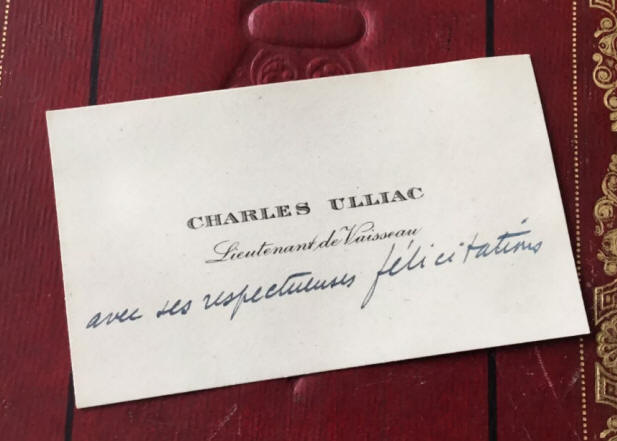 CHARLES ULLIAC
Lieutenant de Vaisseau
avec ses respectueuses félicitations